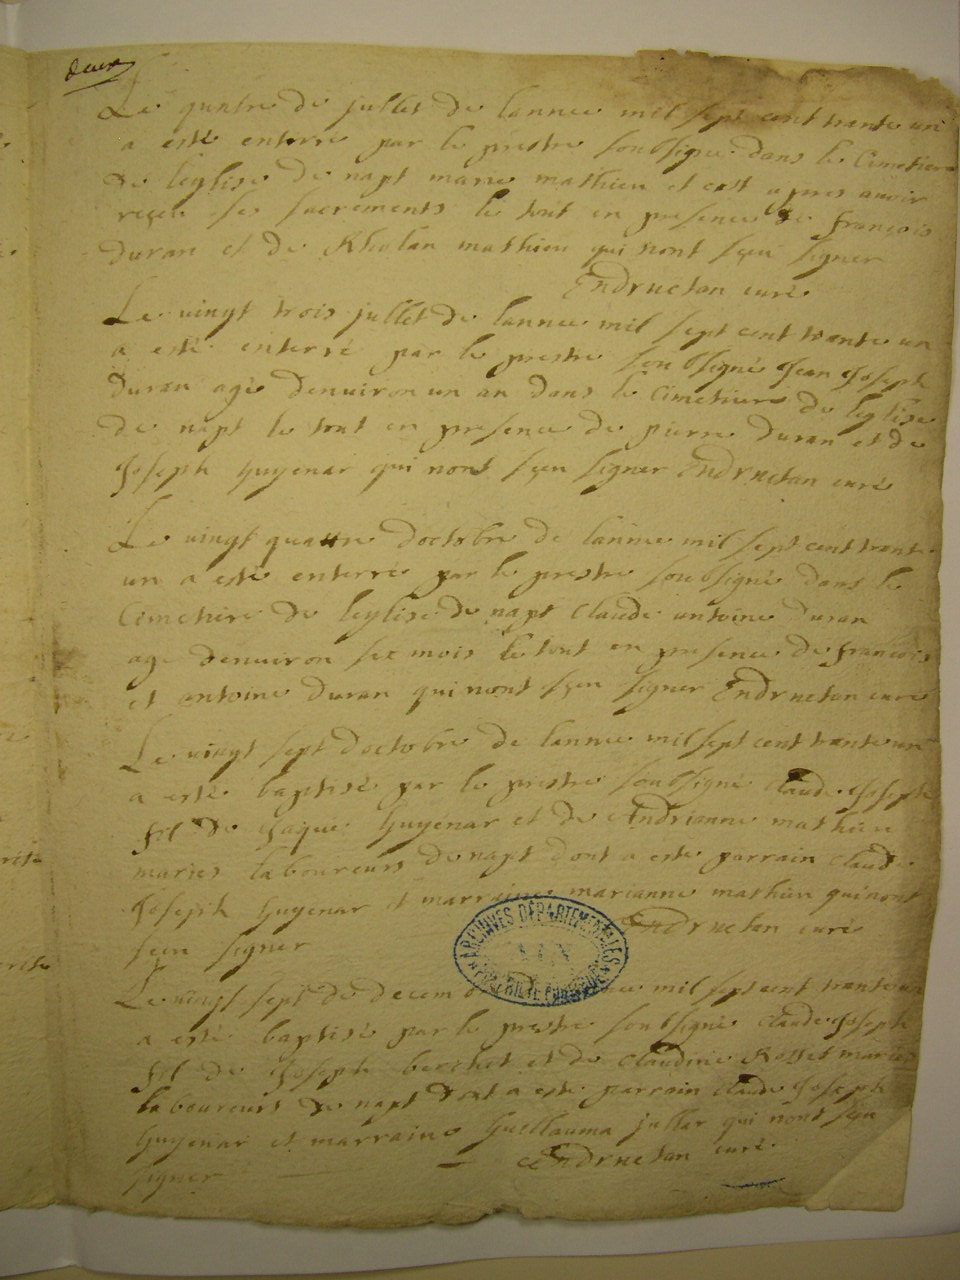 deux
Le quatre de jullet de lannee mil sept cent trante un
a esté enterré par le prestre soubsigné dans le Cimetiere
de leglise de napt marie mathieu et cest apres avoir
reçeu ses sacrements le tout en presence de françois
duran et de Rholan mathieu qui nont sçeu signer
Endructan curé
Le vingt trois jullet de lannee mil sept cent trante un
a esté enterré par le prestre soubsigné Jean Joseph
Duran agé denuiron un an dans le Cimetiere de leglise
de napt le tout en presence de pierre Duran et de
Joseph Guyenar qui nont sçeu signer Endructan curé
Le vingt quattre doctobre de lannee mil sept cent trante
un a esté enterré par le prestre soubsigné dans le
Cimetiere de leglise de napt Claude antoine Duran
agé denuiron set mois le tout en presence de francois
et antoine Duran qui nont sçeu signer Endructan curé
Le vingt sept doctobre de lannee mil sept cent trante un
a esté baptisé par le prestre soubsigné Claude Joseph
fil de Jaque Guyenar et de Andrianne mathieu
maries laboureurs de napt dont a esté parrain Claude
Joseph Guyenar et marraine marianne mathieu qui nont
sçeu signer Endructan curé
Le vingt sept de decem mil sept cent trante un
a esté baptisé par le prestre soubsigné Claude Joseph
fil de Joseph berchet et de Claudine Rosset maries
laboureurs de napt dont a esté parrain Claude Joseph
Guyenar et marraine Guillauma jullar qui nont sçeu
signer Endructan curé
ARCHIVES DÉPARTEMENTALES
AIN
PROPRIÉTÉ PUBLIQUE